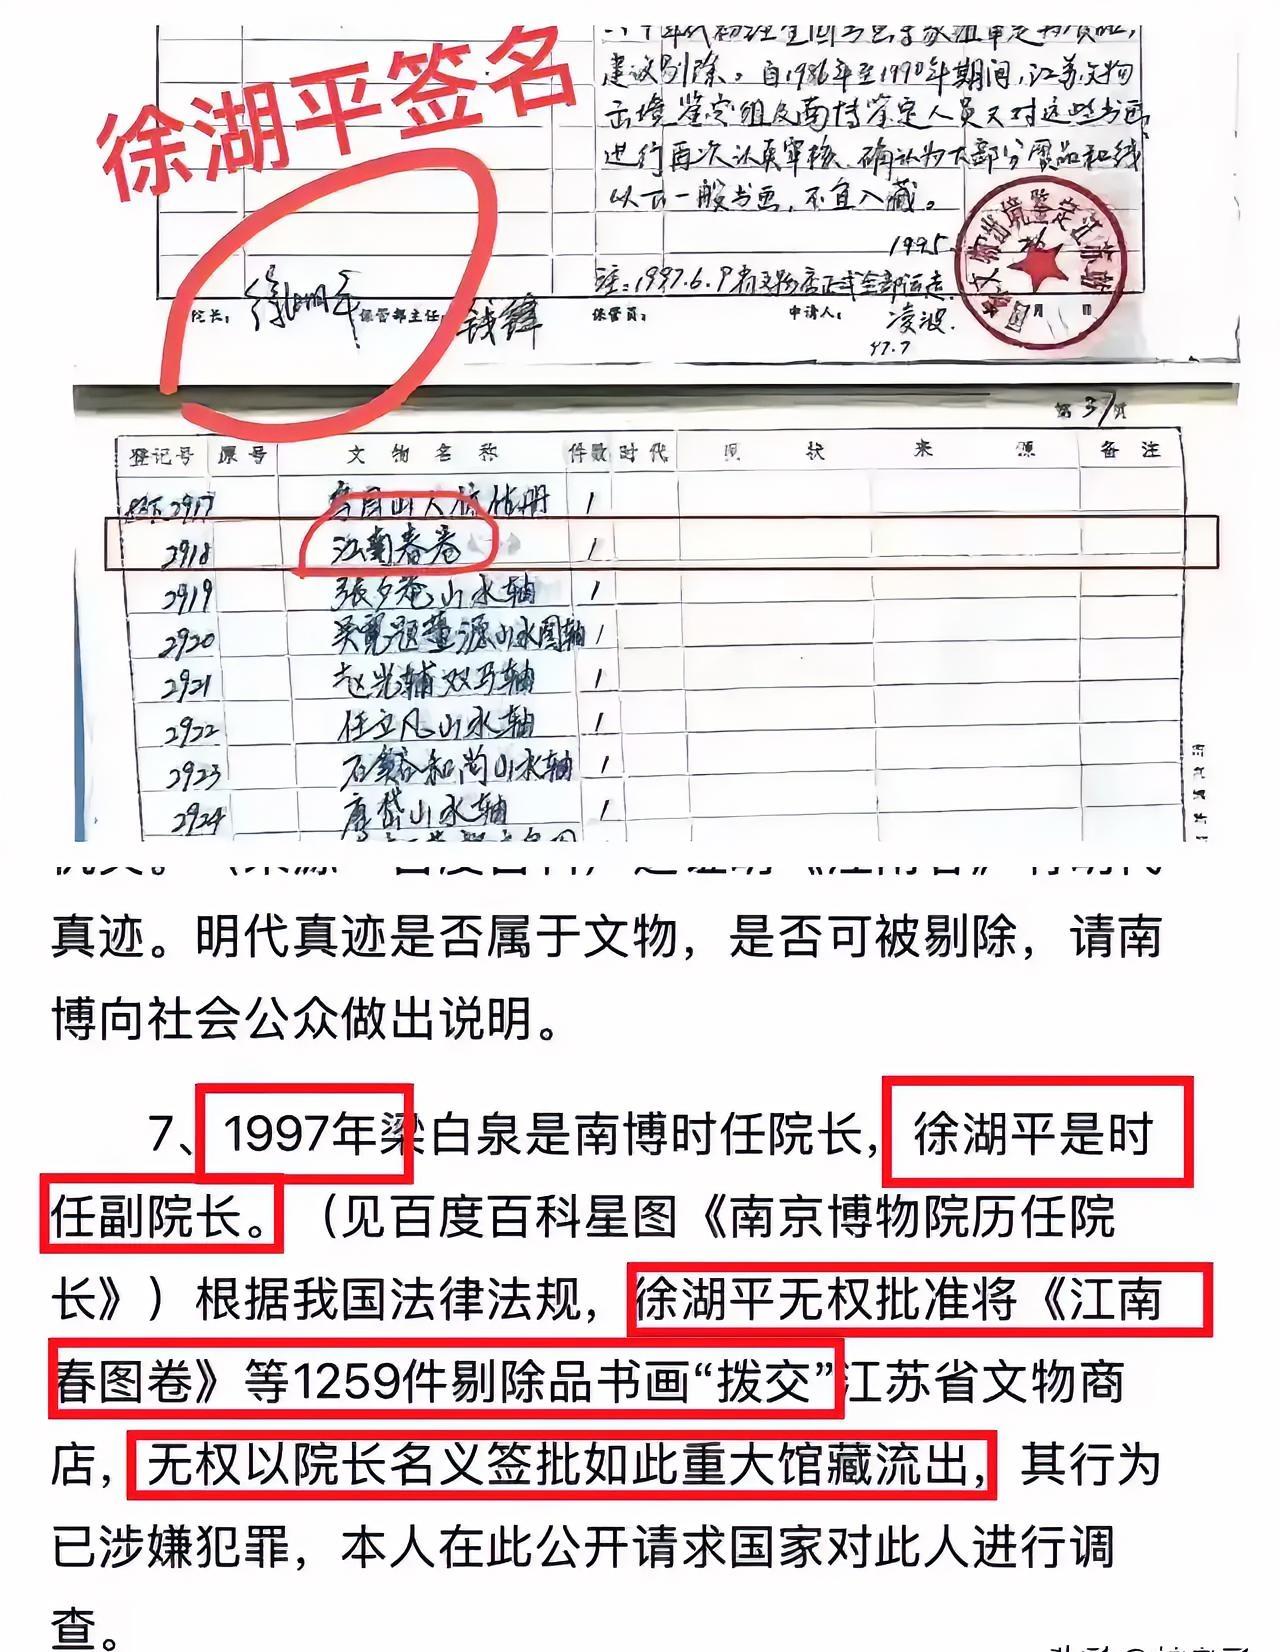 徐湖平签名
建议剔除。自1986年至1990年期间,江苏文物
出境鉴定组及南博鉴定人员又对这些书画
进行再次认真审核,确认为大部分赝品和线
以下一般书画,不宜入藏。
1995.
注:1997.6.9
院长: 徐湖平 保管部主任: 钱锋 保管员: 申请人: 凌波.
97.7
月 日
第 37 页
登记号 原号 文物名称 件数 时代 现状 来源 备注
2917 1
2918 江南春卷 1
2919 張夕菴山水轴 1
2920 吴寛题董源山水图轴 1
2921 赵光辅双马轴 1
2922 任立凡山水轴 1
2923 石和尚山水轴 1
2924 唐岱山水轴 1
真迹。明代真迹是否属于文物，是否可被剔除，请南
博向社会公众做出说明。
7、1997年梁白泉是南博时任院长，徐湖平是时
任副院长。（见百度百科星图《南京博物院历任院
长》）根据我国法律法规，徐湖平无权批准将《江南
春图卷》等1259件剔除品书画“拨交”江苏省文物商
店，无权以院长名义签批如此重大馆藏流出，其行为
已涉嫌犯罪，本人在此公开请求国家对此人进行调
查。